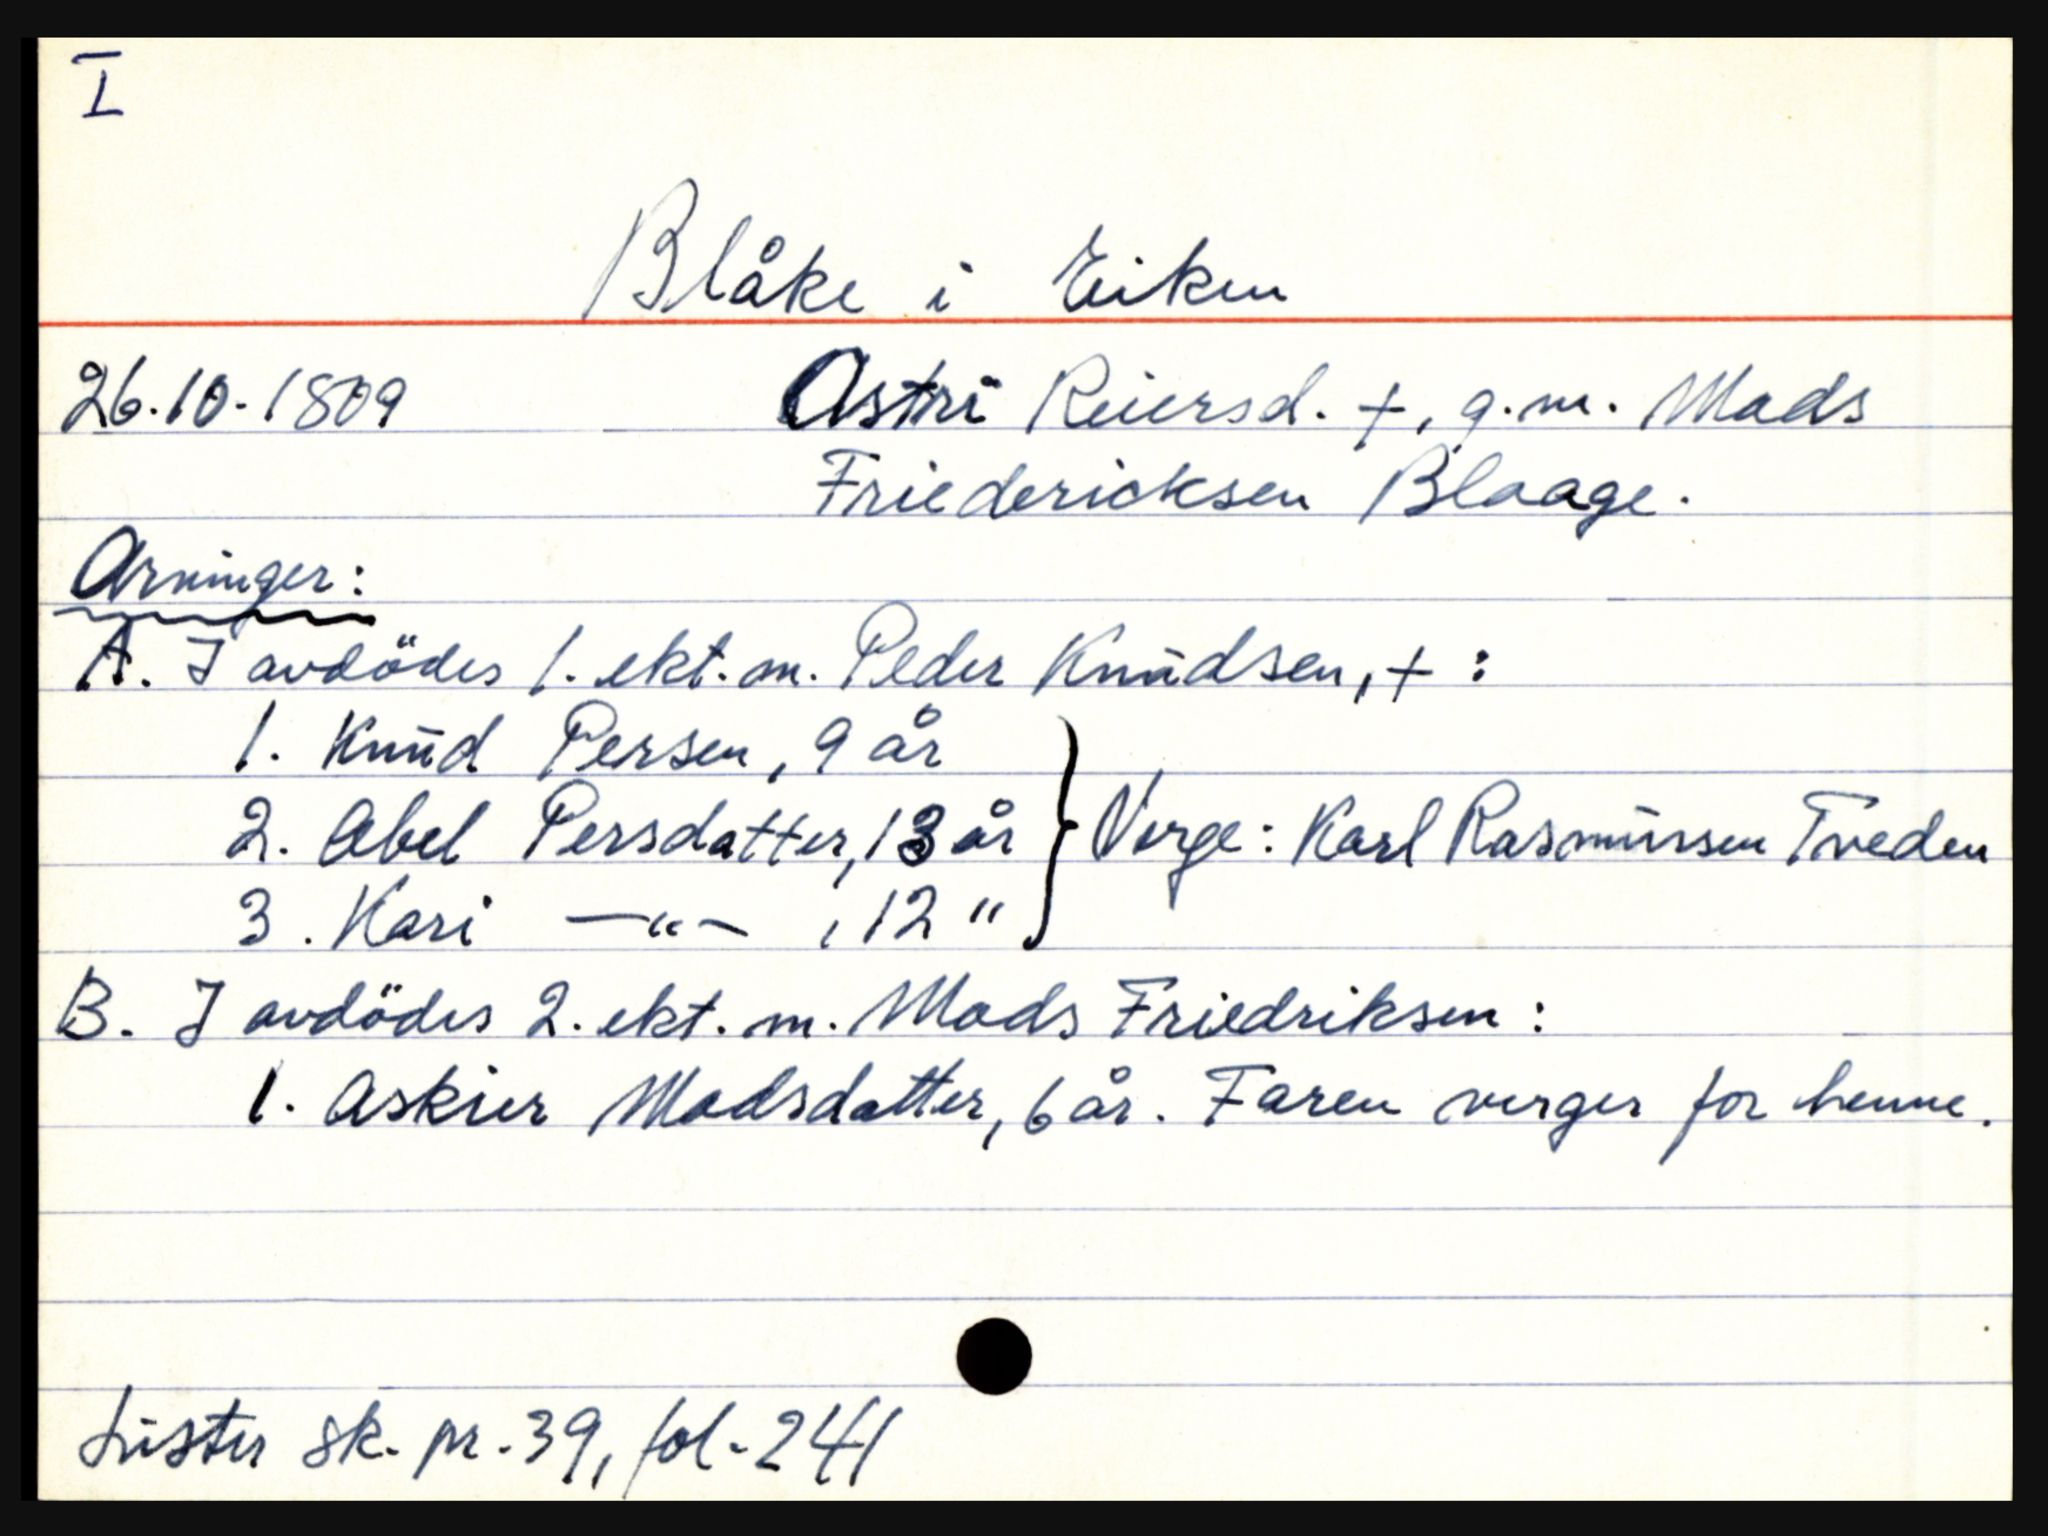 I
Blåke i Eiken
26.10.1809 Astri Reiersd. +, g.m. Mads
Friedericksen Blaage.
Arvinger:
A. I avdödes 1. ekt. m. Peder Knudsen, + :
1. Knud Persen, 9 år
2. Abel Persdatter, 13 år } Verge: Karl Rasmussen Tveden
3. Kari —"— , 12 "
B. I avdödes 2. ekt. m. Mads Friedriksen :
1. Askier Madsdatter, 6 år. Faren verger for henne.
Lister sk. pr. 39, fol. 241